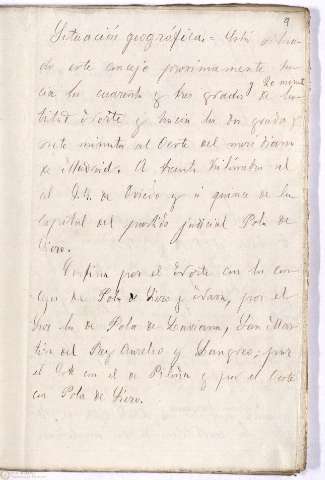 9
Situación geográfica.- Está situa-
do este concejo proximamente ha-
20 minutos
cia los cuarenta y tres grados de la-
titud Norte y hacia los dos grados y
siete minutos al Oeste del meridiano
de Madrid. A treinta kilómetros al
al S.E. de Oviedo y a quince de la
capital del partido judicial Pola de
Siero.
Confina por el Norte con los conce-
jos de Pola de Siero y Nava, por el
Sur los de Pola de Laviana, San Mar-
tín del Rey Aurelio y Langreo; por
el Este con el de Piloña y por el Oeste
con Pola de Siero.